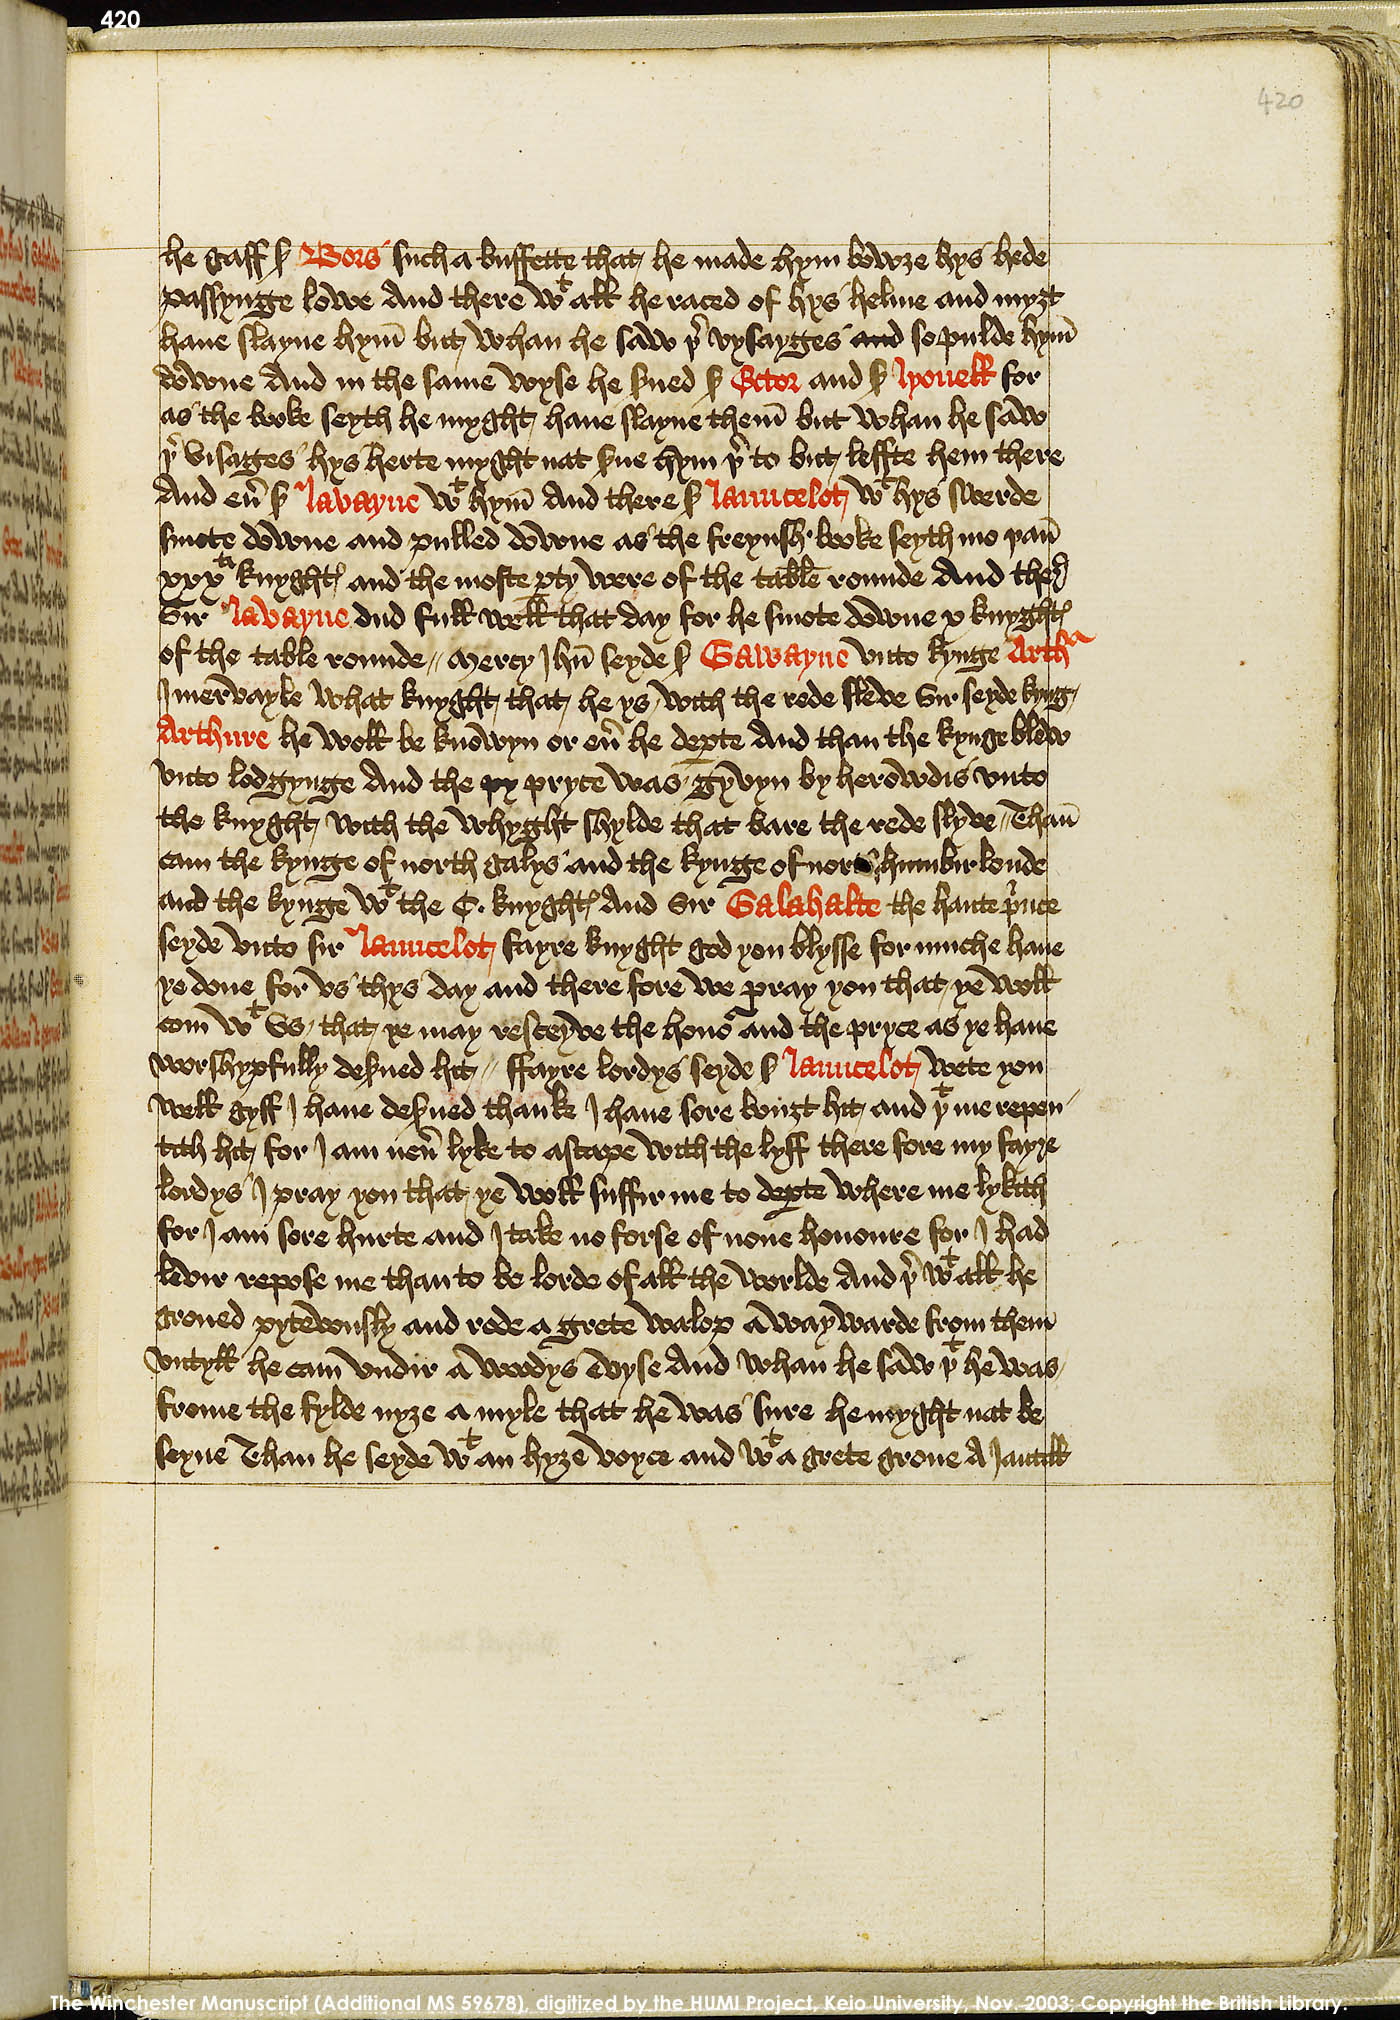 420
420
he gaff s Bors such a buffette that he made hym bowze hys hede
passynge lowe And there wt all he raced of hys helme and myzt
haue slayne hym but whan he saw þr vysayges and so pulde hym
downe And in the same wyse he sued s Ector and s lyonell for
as the booke seyth he myght haue slayne them but whan he saw
þr visages hys herte myght nat sue hym þr to but leffte hem there
And eu s lavayne wt hym And there s launcelot wt hys swerde
smote downe and pulled downe as the freynsh booke seyth mo þan
xxxti knyghts and the moste pty were of the table rounde And ther
Sir lavayne dud full well that day for he smote downe x knyghts
of the table rounde // Mercy Jhu seyde s Gawayne vnto kynge Arthr
I mervayle what knyght that he ys with the rede sleve Sir seyde kyng
Arthure he woll be knowyn or eu he depte And than the kynge blew
vnto lodgynge And the py pryce was gyvyn by herowdis vnto
the knyght with the whyght shylde that bare the rede slyve // Than
cam the kynge of north galys and the kynge of north humbir londe
and the kynge wt the C. knyghts And Sir Galahalte the haute prince
seyde vnto sir launcelot fayre knyght god you blysse for muche haue
ye done for vs thys day and there fore we pray you that ye woll
com wt vs that ye may resceyve the honor and the pryce as ye haue
worshypfully desued hit // ffayre lordys seyde s launcelot wete you
well gyff I haue desued thanke I haue sore bouzt hit and þt me repen
tith hit for I am neu lyke to ascape with the lyff there fore my fayre
lordys I pray you that ye woll suffir me to depte where me lykith
for I am sore hurte and I take no forse of none honoure for I had
levir repose me than to be lorde of all the worlde And þr wt all he
groned pytewusly and rode a grete walop a way warde from them
vntyll he cam vndir a woodys evyse And whan he saw þt he was
frome the fylde nyze a myle that he was sure he myght nat be
seyne Than he seyde wt an hyze voyce and wt a grete grone A Jantill
The Winchester Manuscript (Additional MS 59678), digitized by the HUMI Project, Keio University, Nov. 2003; Copyright the British Library.